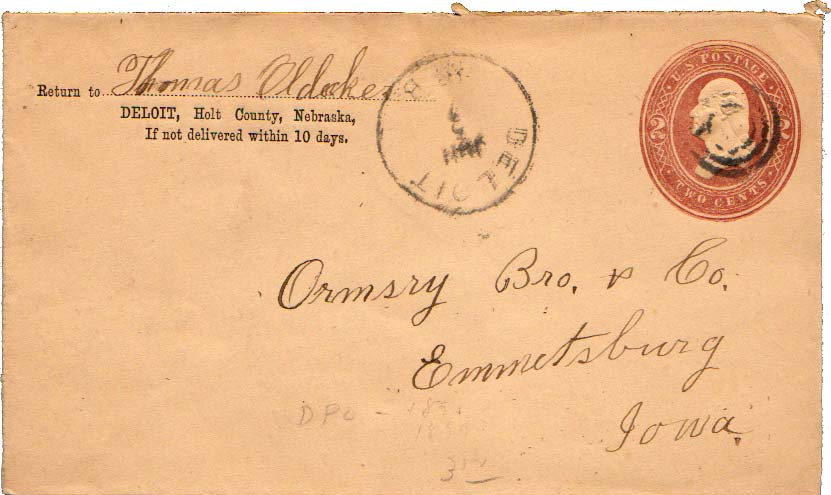 Return to Thomas Oldaker
DELOIT, Holt County, Nebraska,
If not delivered within 10 days.
DELOIT
U.S. POSTAGE
2 2
TWO CENTS
Ormsry Bro. & Co.
Emmetsburg
Iowa.
DPO -